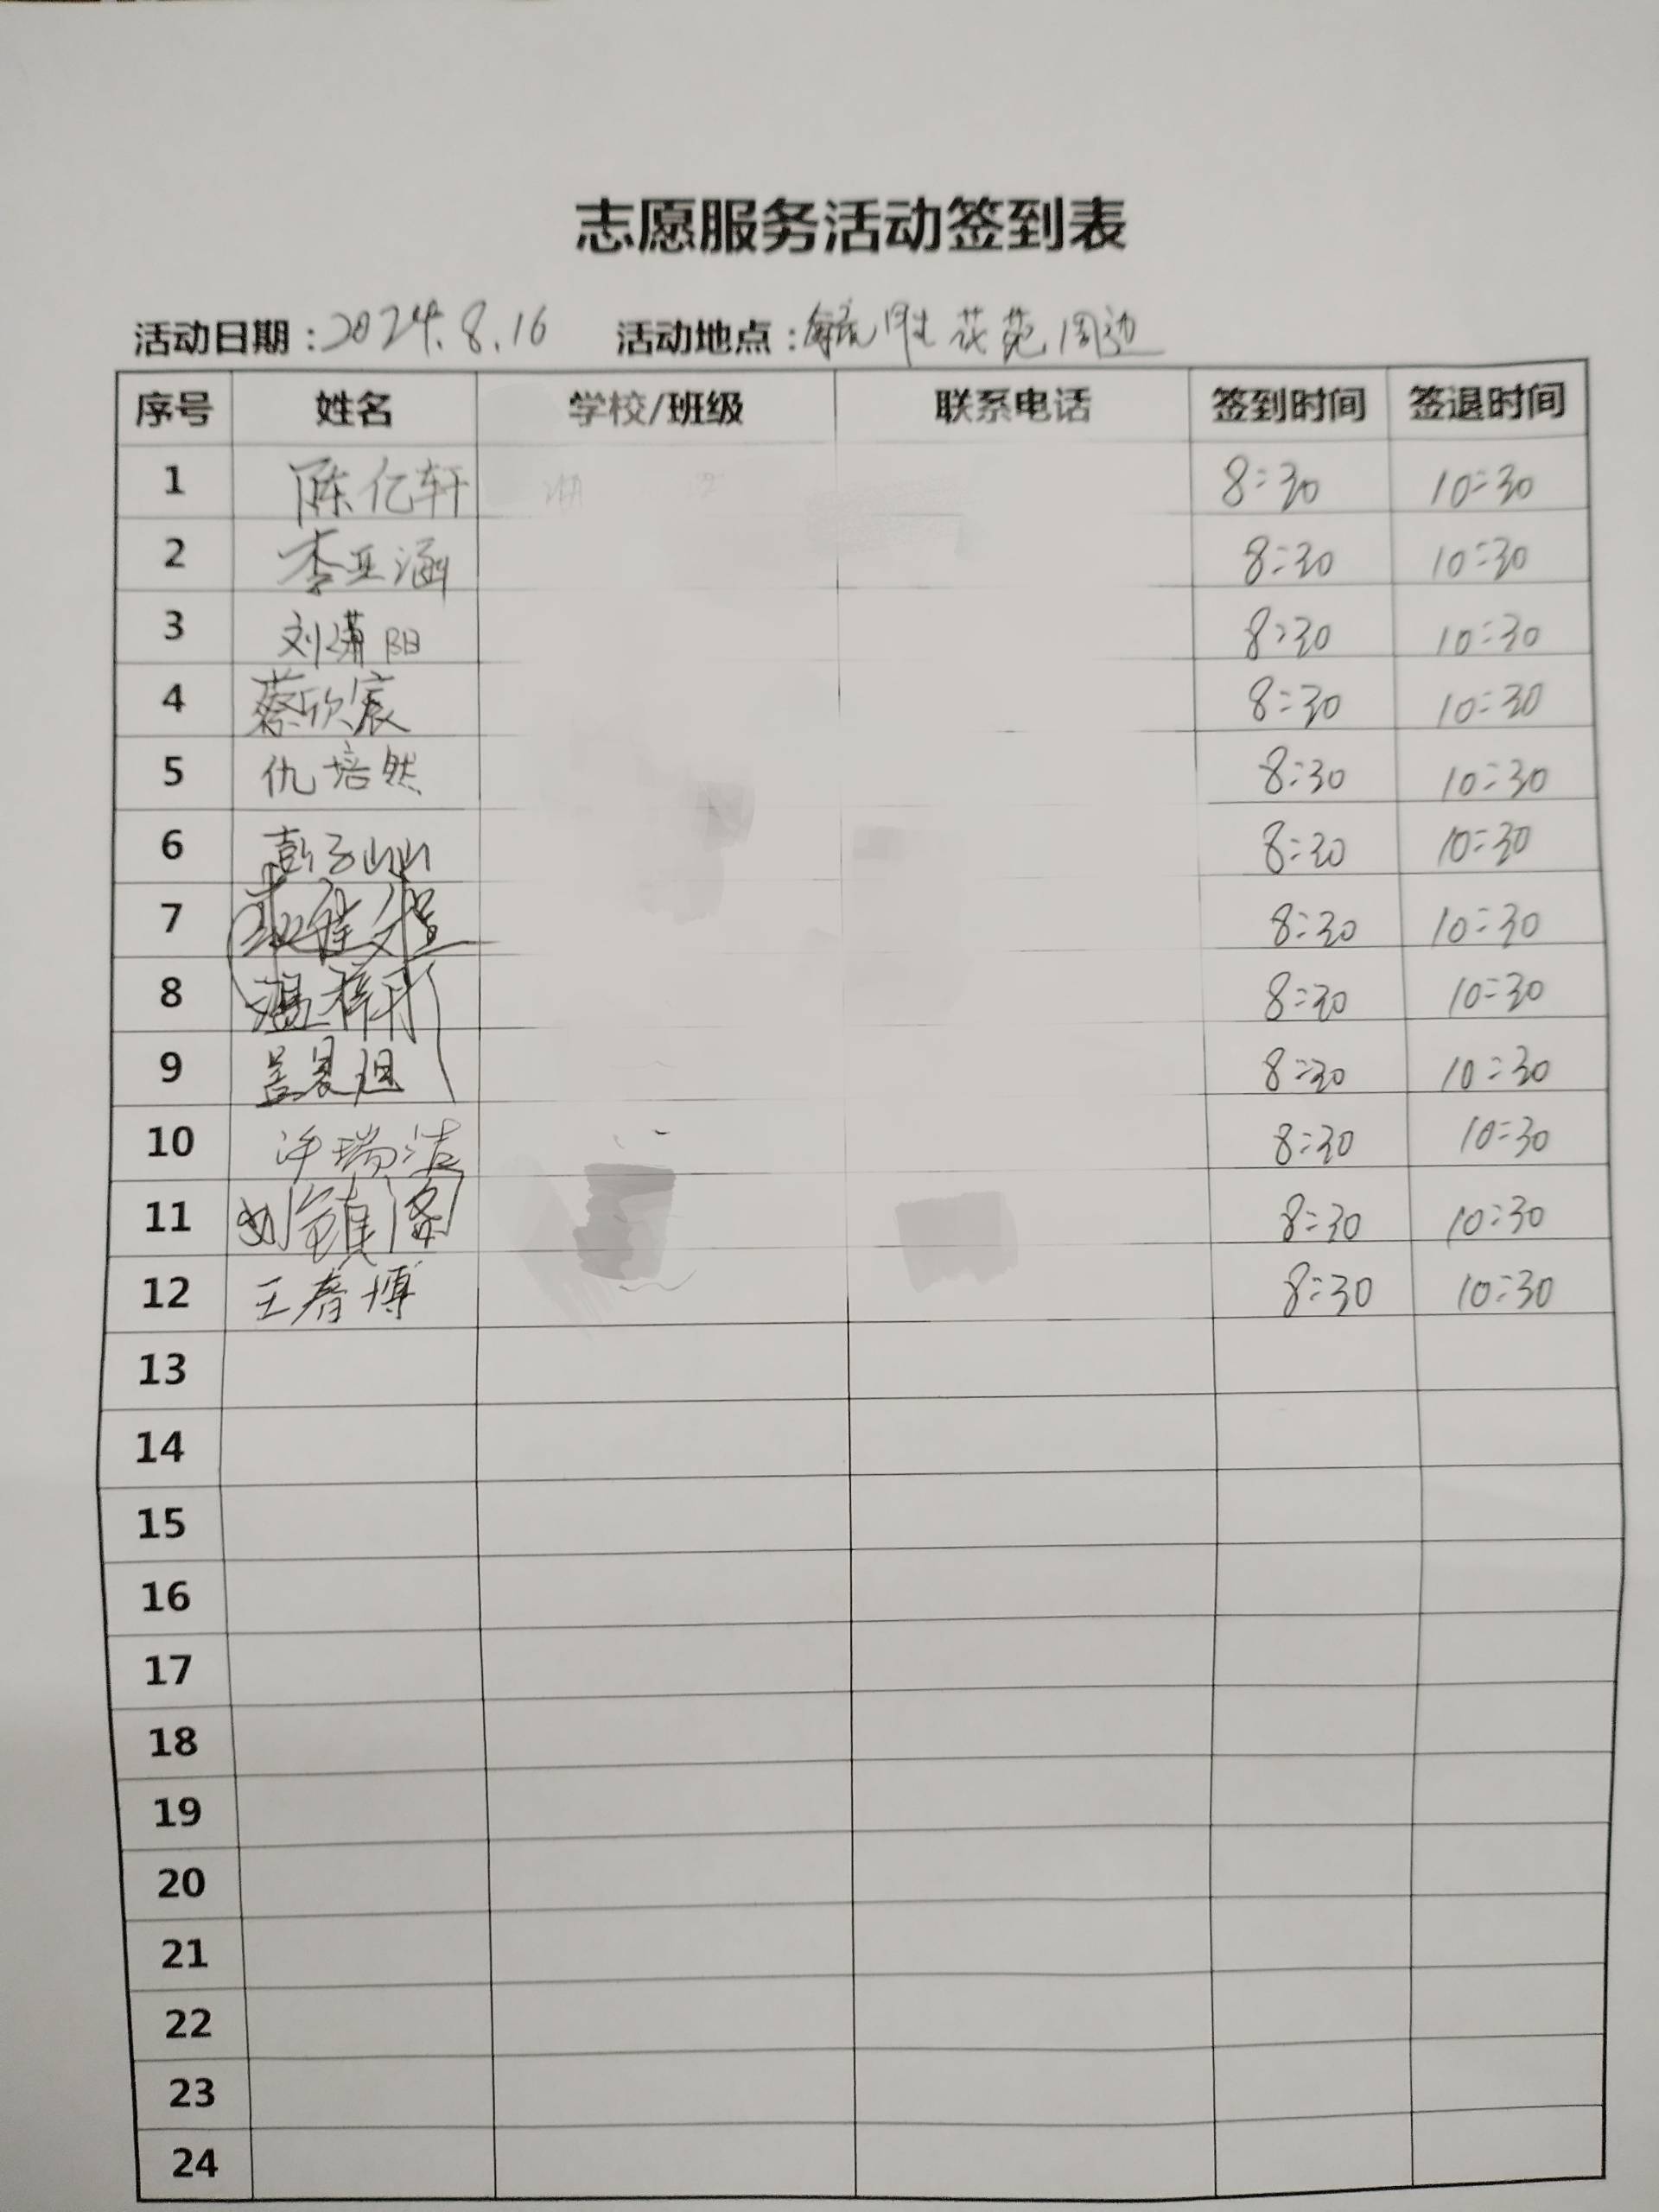 志愿服务活动签到表
活动日期：2024.8.16 活动地点：毓胜花苑周边
序号 姓名 学校/班级 联系电话 签到时间 签退时间
1 陈亿轩 8:30 10:30
2 李亚涵 8:30 10:30
3 刘潇阳 8:30 10:30
4 蔡欣宸 8:30 10:30
5 仇培然 8:30 10:30
6 彭子山山 8:30 10:30
7 8:30 10:30
8 温梓彤 8:30 10:30
9 8:30 10:30
10 许瑞洁 8:30 10:30
11 8:30 10:30
12 王春博 8:30 10:30
13
14
15
16
17
18
19
20
21
22
23
24